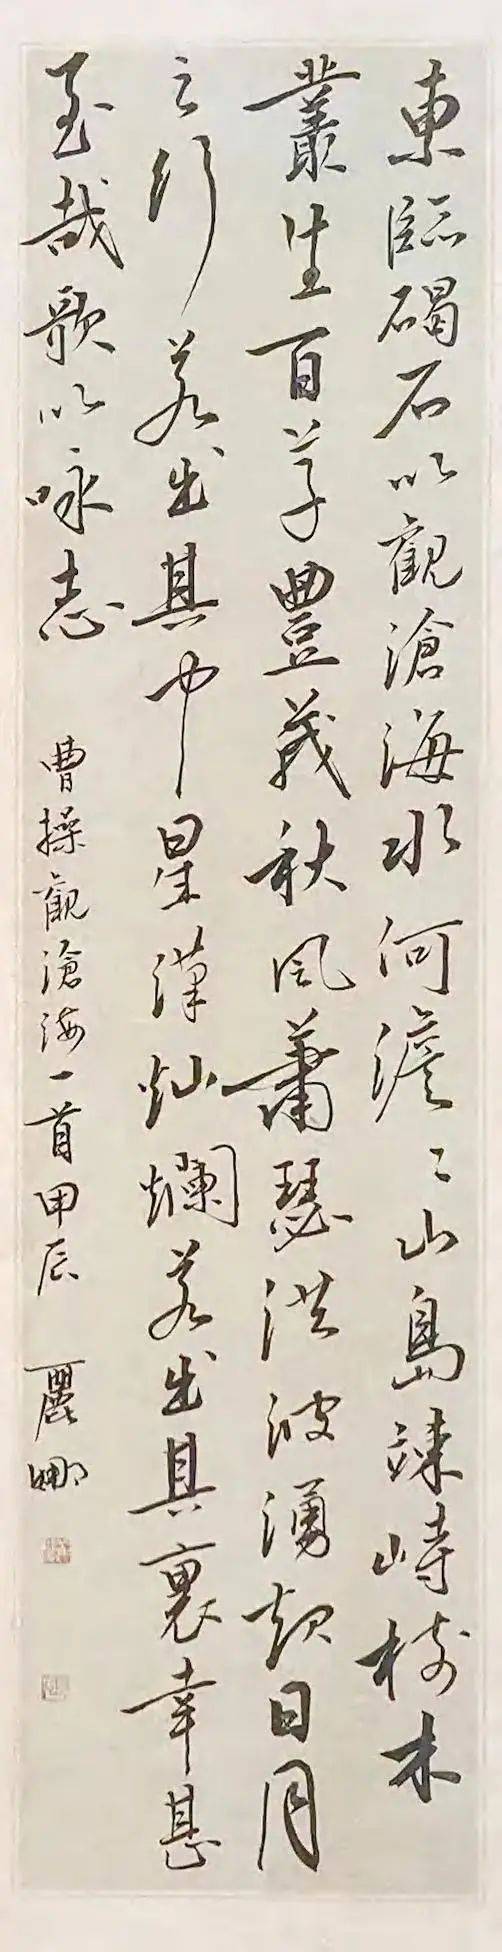 東臨碣石以觀滄海水何澹〻山島竦峙樹木
叢生百草豊茂秋風蕭瑟洪波湧起日月
之行若出其中星漢灿爛若出其裏幸甚
至哉歌以咏志
曹操觀滄海一首甲辰 麗娜